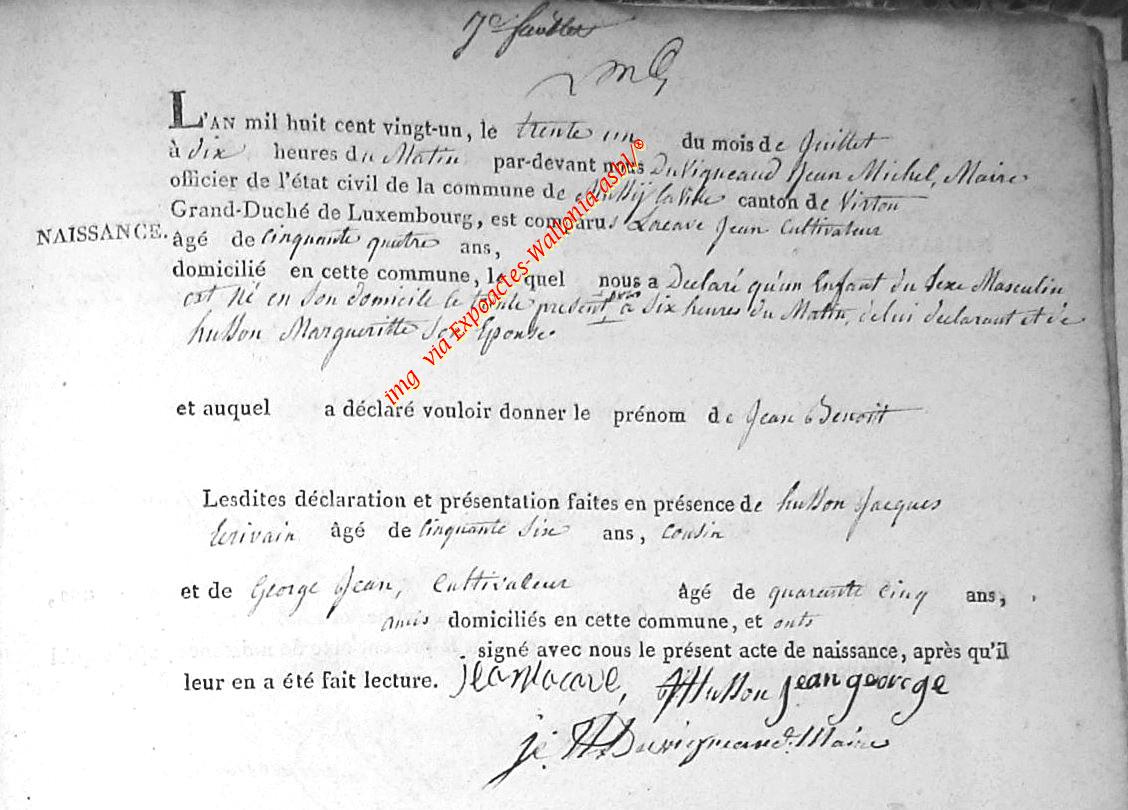 7e feuillet
L'AN mil huit cent vingt-un, le trente un du mois de Juillet
à dix heures du Matin par-devant nous Duvigneaud Jean Michel, Maire
officier de l'état civil de la commune de Mussy la Ville canton de Virton
Grand-Duché de Luxembourg, est comparus Lacave Jean Cultivateur
NAISSANCE.
âgé de Cinquante quatre ans,
domicilié en cette commune, le quel nous a Declaré qu'un Enfant du Sexe Masculin
est Né en Son domicile le trente present mois à Six heures du Matin, de lui declarant et de
husson Margueritte Son Epouse.
et auquel a déclaré vouloir donner le prénom de Jean Benoit
Lesdites déclaration et présentation faites en présence de husson Jacques
Ecrivain âgé de Cinquante Six ans, Cousin
et de George Jean, Cultivateur âgé de quarante Cinq ans,
amis domiciliés en cette commune, et onts
signé avec nous le présent acte de naissance, après qu'il
leur en a été fait lecture. jean lacave, Husson jean george
Duvigneaud. Maire
img via Expoactes-Wallonia asbl/®